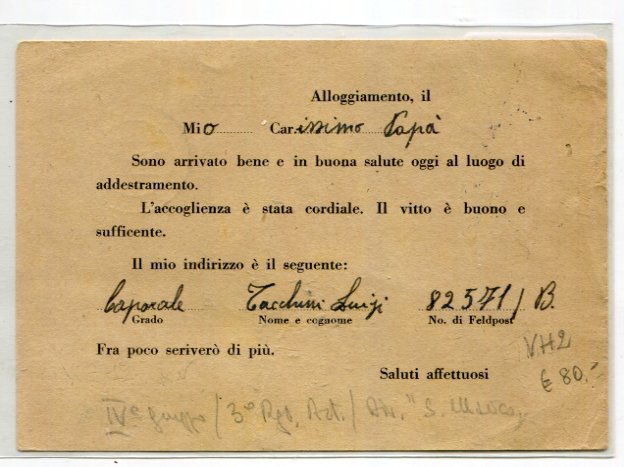 Alloggiamento, il
Mio Carissimo Papà
Sono arrivato bene e in buona salute oggi al luogo di
addestramento.
L'accoglienza è stata cordiale. Il vitto è buono e
sufficente.
Il mio indirizzo è il seguente:
Caporale Tacchini Luigi 82571/B.
Grado Nome e cognome No. di Feldpost
Fra poco seriverò di più.
Saluti affettuosi
VH2
€ 80.-
IVº gruppo / 3º Rgt. Art. / Div. "S. Marco"